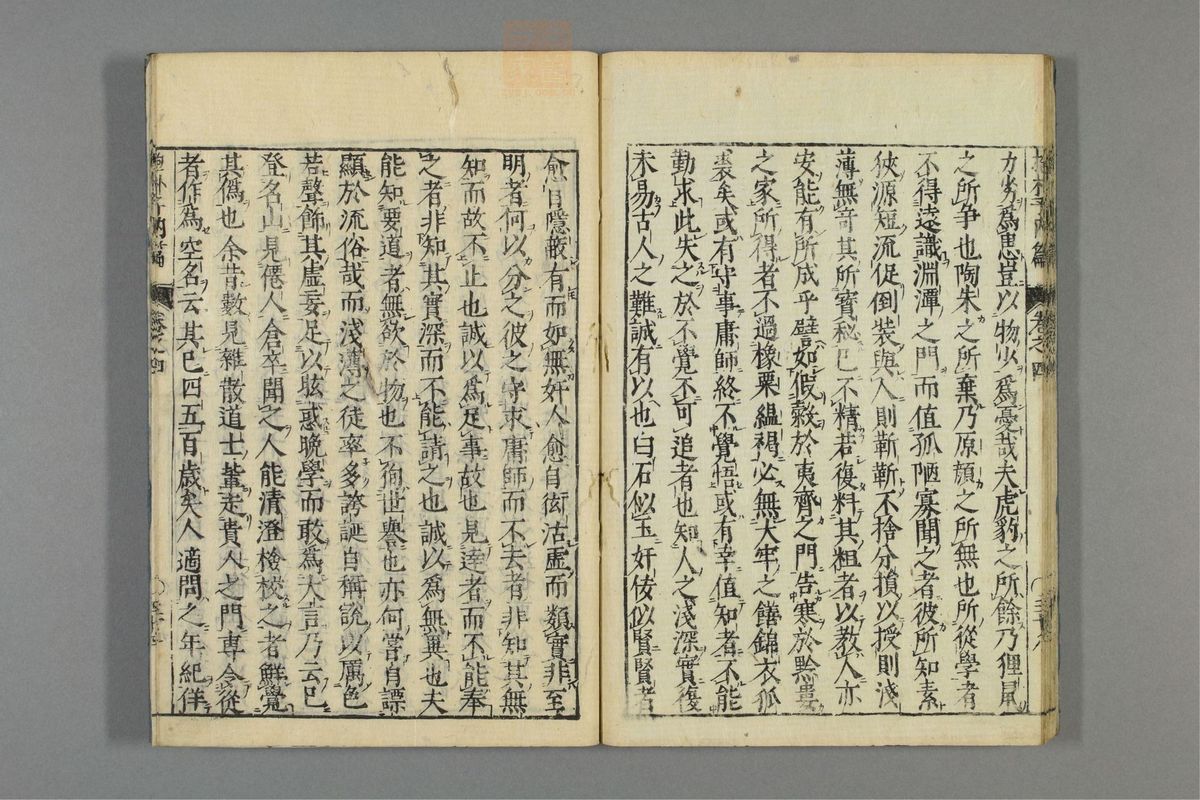 力劣爲患豈以物少爲憂哉夫虎豹之所餘乃狸鼠
之所爭也陶朱之所棄乃原顏之所無也所從學者
不得遠識淵潭之門而值孤陋寡聞之者彼所知素
狹源短流促倒裝與人則靳靳不捨分損以授則淺
薄無竒其所寳秘已不精若復料其粗者以教人亦
安能有所成乎譬如假糓於夷齊之門告寒於黔婁
之家所得者不過橡栗縕褐必無大牢之饍錦衣狐
裘矣或有守事庸師終不覺悟或有幸值知者不能
勤求此失之於不覺不可追者也知人之淺深實復
未易古人之難誠有以也白石似玉奸佞似賢賢者
愈自隱蔽有而如無奸人愈自衒沽虛而類實非至
明者何以分之彼之守求庸師而不去者非知其無
知而故不止也誠以爲足事故也見達者而不能奉
之者非知其實深而不能請之也誠以爲無異也夫
能知要道者無欲於物也不徇世譽也亦何嘗自標
顯於流俗哉而淺薄之徒率多誇誕自稱說以厲色
若聲飾其虛妄足以眩惑晚學而敢爲大言乃云已
登名山見僊人倉卒聞之人能清澄檢校之者鮮覺
其偽也余昔數見雜散道士輩走貴人之門專令從
者作爲空名云其已四五百歲矣人適問之年紀佯